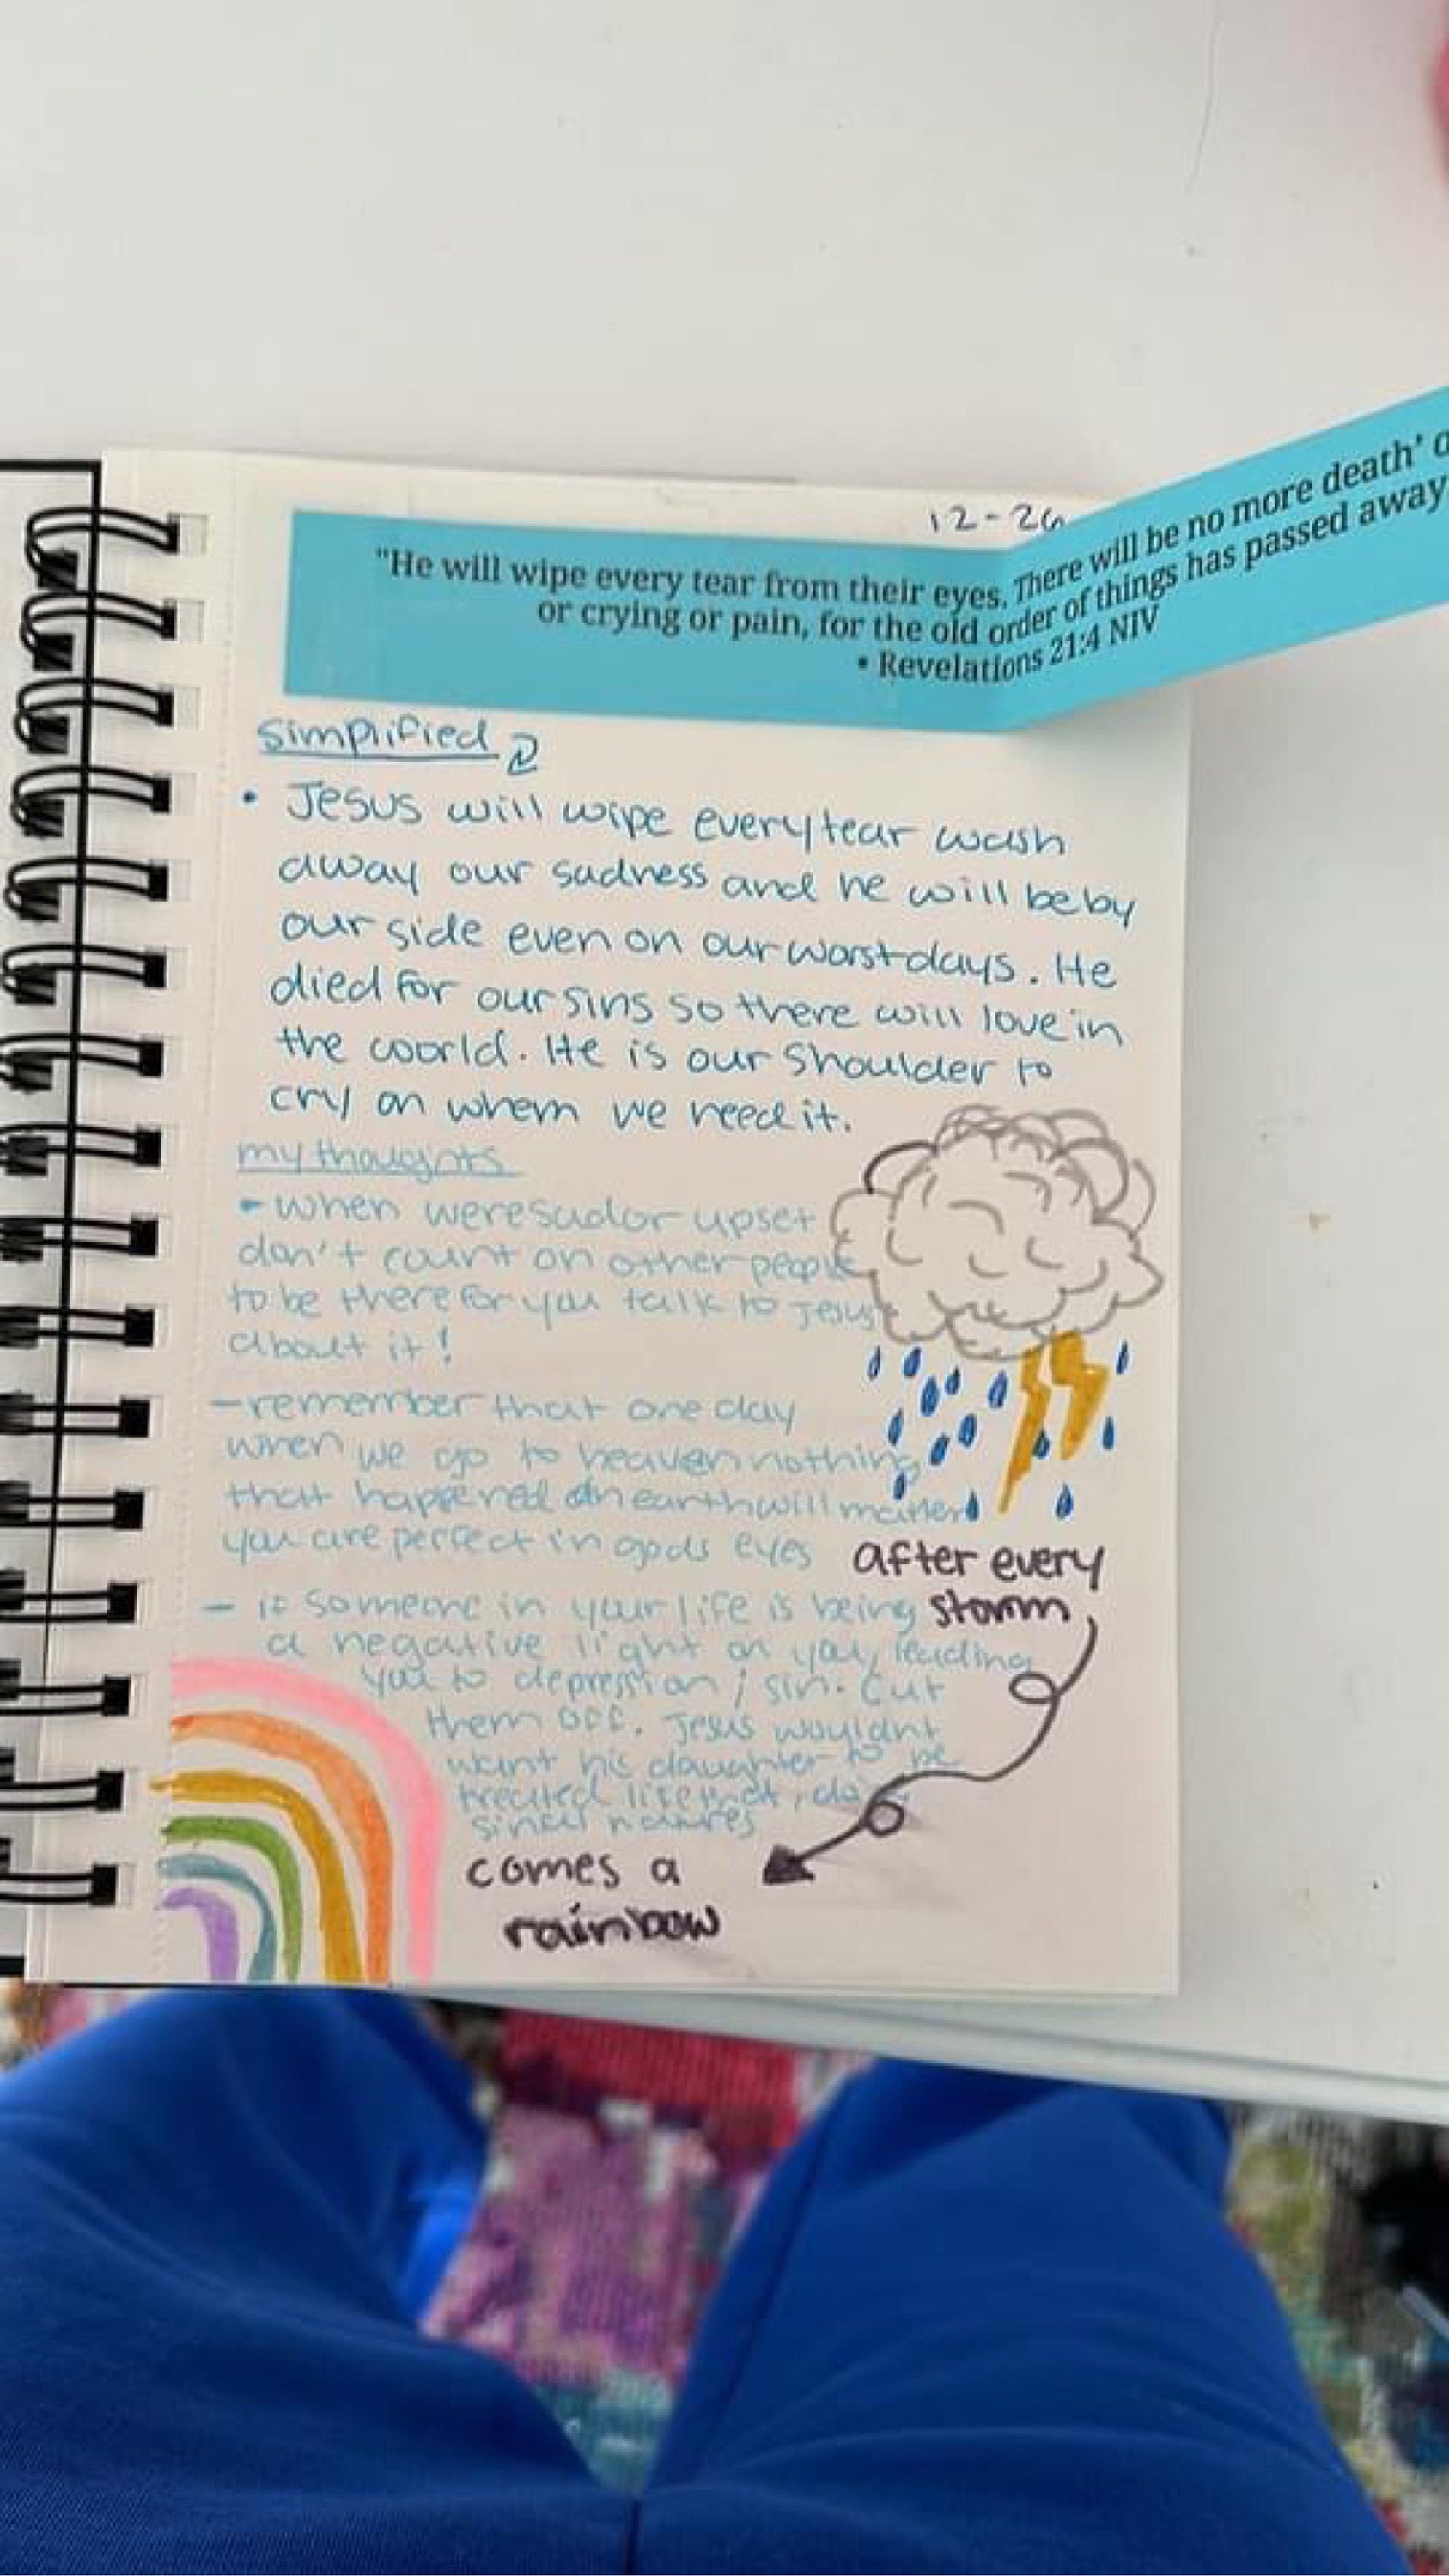 12-26
"He will wipe every tear from their eyes. There will be no more death'
or crying or pain, for the old order of things has passed away
• Revelations 21:4 NIV
simplified
• Jesus will wipe every tear wash
away our sadness and he will be by
our side even on our worst days. He
died for our sins so there will love in
the world. He is our shoulder to
cry on when we need it.
my thoughts
- when were sad or upset
don't count on other people
to be there for you talk to Jesus
about it!
- remember that one day
when we go to heaven nothing
that happened on earth will matter
you are perfect in gods eyes
- if someone in your life is being
a negative light on you, leading
you to depression; sin. Cut
them off. Jesus wouldnt
want his daughter to be
treated
after every
storm
comes a
rainbow